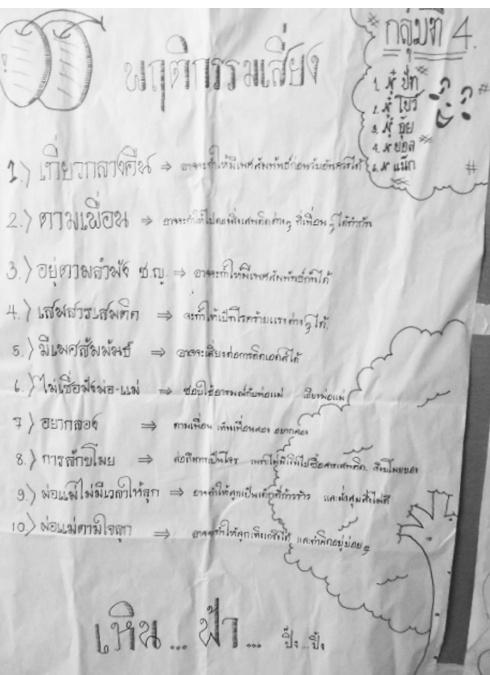 พฤติกรรมเสี่ยง
กลุ่มที่ 4.
1. N' ปัท
2. N' โยวี่
3. N' อุ้ย
4. N' ยอล
5. N' แม๊ก
1.) เที่ยวกลางคืน ⇒ อาจจะทำให้มีเพศสัมพันธ์ก่อนวัยอันควรได้
2.) ตามเพื่อน ⇒ อาจจะทำให้ไป สิ่งเสพติดต่างๆ ที่เพื่อนๆ ได้
3.) อยู่ตามลำพัง ช.ญ. ⇒ อาจจะทำให้มีเพศสัมพันธ์กันได้
4.) เสพสารเสพติด ⇒ จะทำให้เป็นโรคร้ายแรงต่างๆ ได้
5.) มีเพศสัมพันธ์ ⇒ อาจจะเสี่ยงต่อการติดเอดส์ได้
6.) ไม่เชื่อฟังพ่อ-แม่ ⇒ ชอบใช้อารมณ์กับพ่อแม่ เถียงพ่อแม่
7.) อยากลอง ⇒ ตามเพื่อน เห็นเพื่อนลอง อยากลอง
8.) การลักขโมย ⇒ เพราะไม่มีเงินไปซื้อสารเสพติด ขโมยของ
9.) พ่อแม่ไม่มีเวลาให้ลูก ⇒ อาจทำให้ลูกเป็นเด็กก้าวร้าว และ
10.) พ่อแม่ตามใจลูก ⇒ อาจจะทำให้ลูก ได้ และ อยู่บ่อยๆ
เหิน... ฟ้า... ปิ๊ง..ปิ๊ง